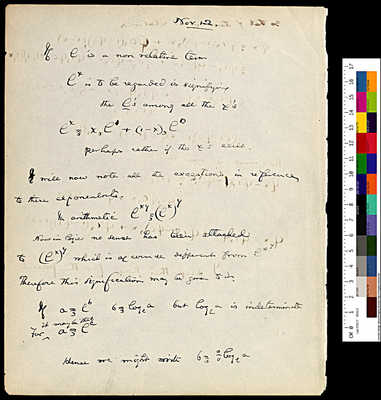 Nov. 12.
If l is a non relative term
l^x is to be regarded as signifying
the l's among all the x's
l^x = x, l^1 + (1-x), l^0
perhaps rather if the x's exist.
I will now note all the exceptions in reference
to these exponents.
In arithmetic l^xy = (l^x)^y
Now in logic no sense has been attached
to (l^x)^y which is of course different from l^xy
Therefore this signification may be given to it.
If a = l^b b = log_l a but log_l a is indeterminate
For it may be that a = l^c
Hence we might write b = log_l a